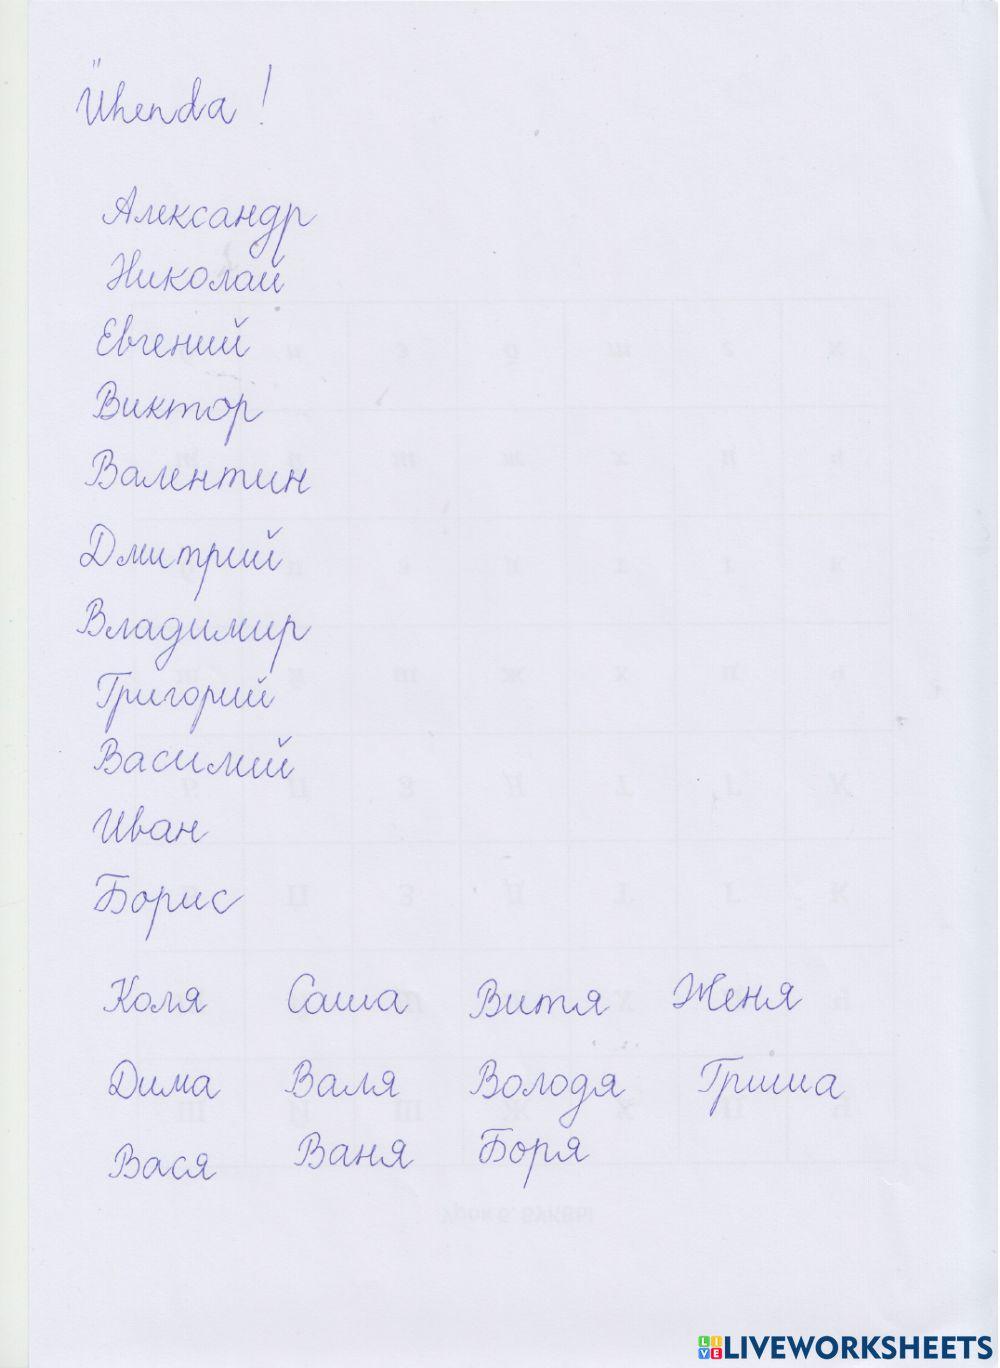 Ühenda!
Александр
Николай
Евгений
Виктор
Валентин
Дмитрий
Владимир
Григорий
Василий
Иван
Борис
Коля Саша Витя Женя
Дима Валя Володя Гриша
Вася Ваня Боря
Урок 6. БУКВЫ
LIVEWORKSHEETS